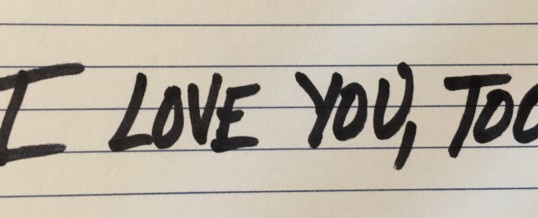 I LOVE YOU, TOO